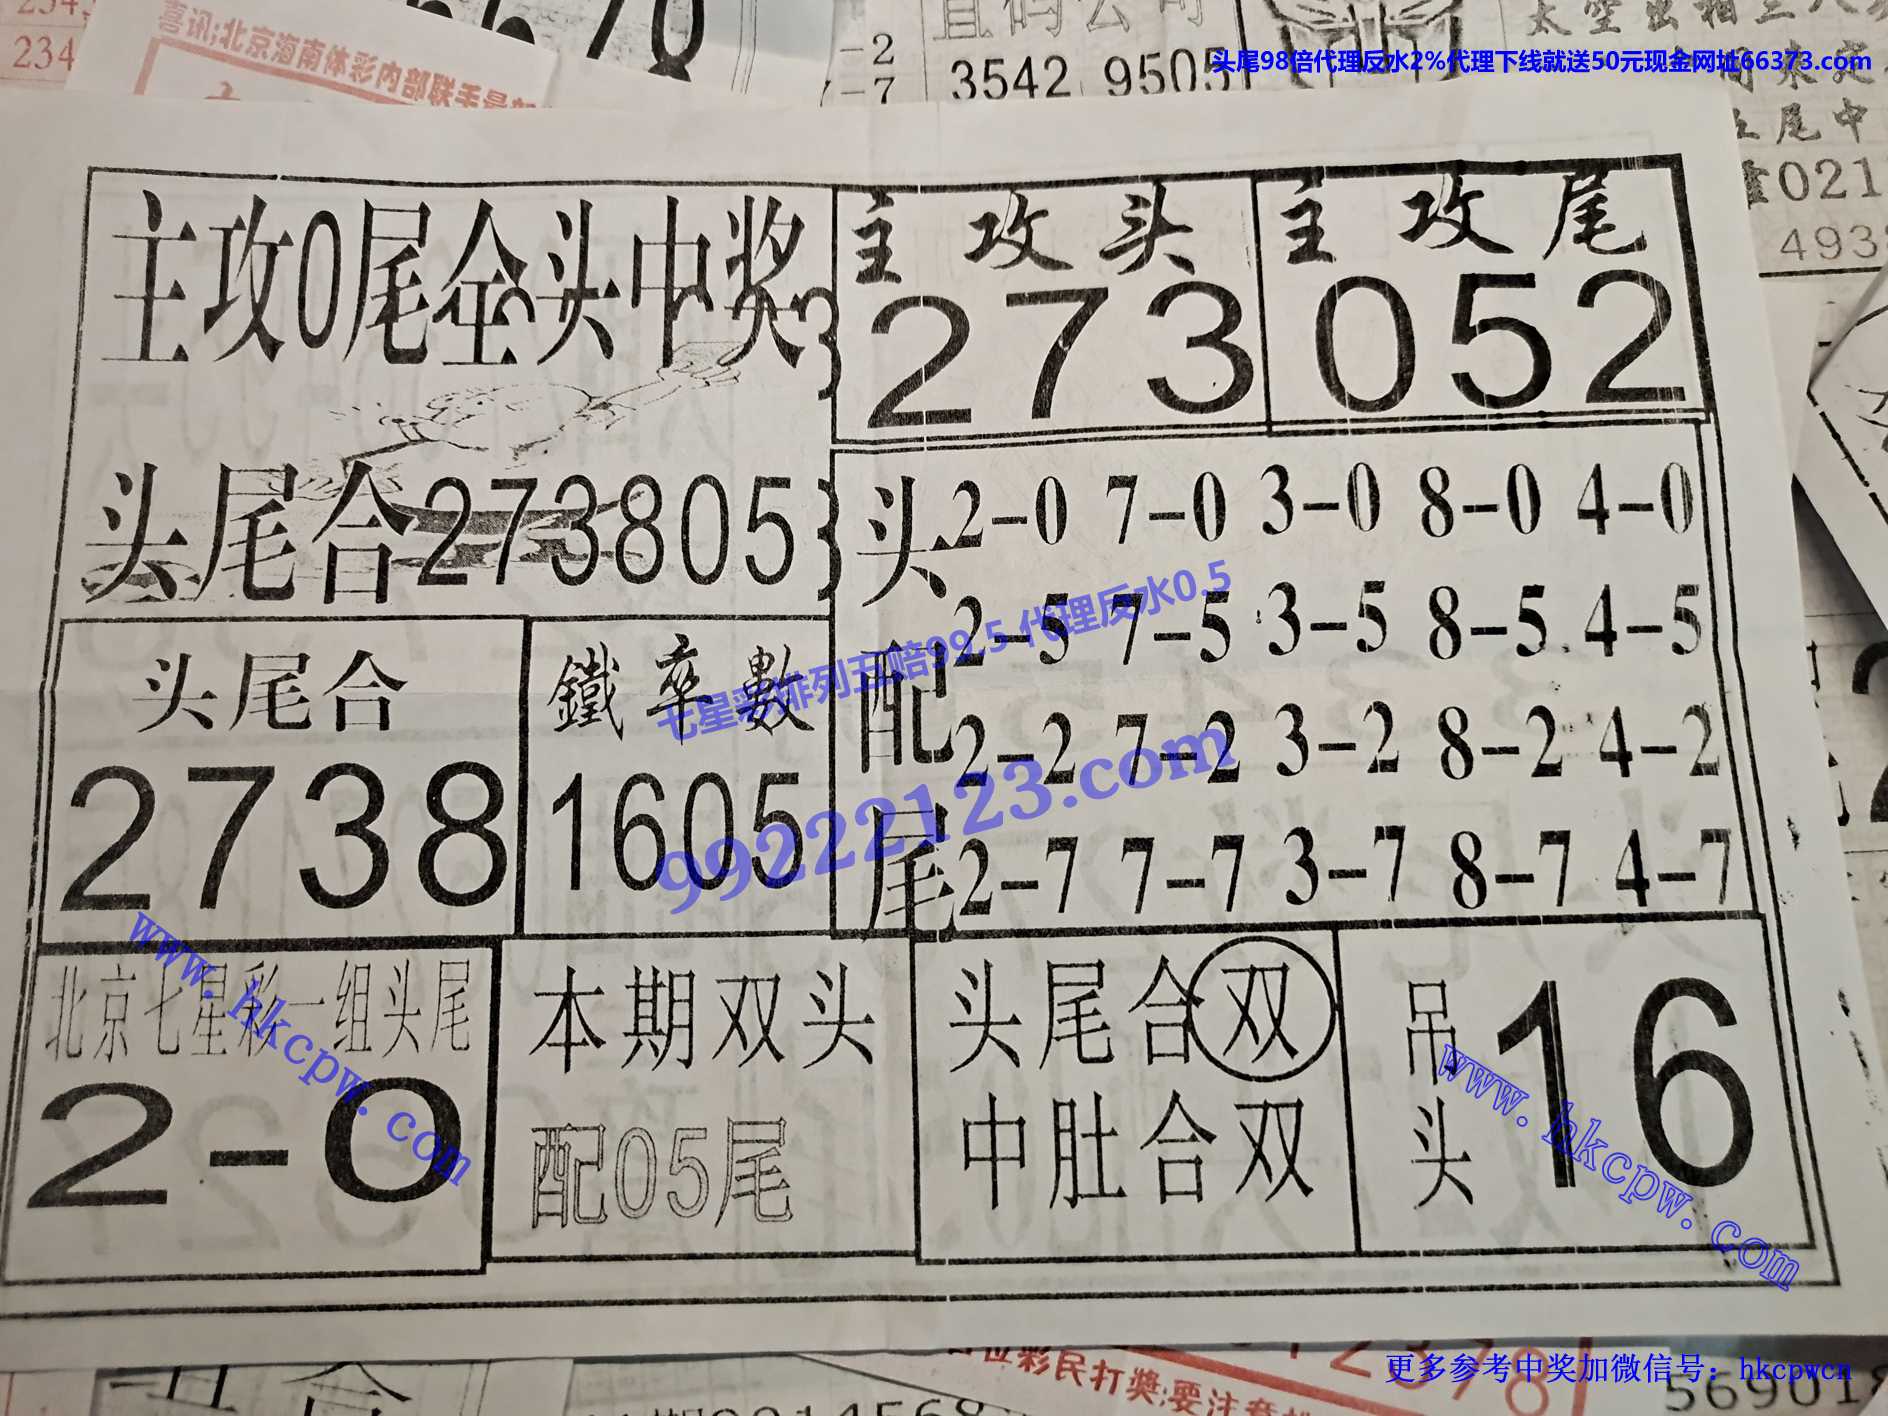 喜讯:北京海南体彩内部联手最新
234
-2
-7
直码公司
3542 9505
头尾98倍代理反水2%代理下线就送50元现金网址66373.com
尾中
021
493
主攻0尾全头中奖
主攻头
273
主攻尾
052
头尾合273805
头配尾
2-0 7-0 3-0 8-0 4-0
2-5 7-5 3-5 8-5 4-5
2-2 7-2 3-2 8-2 4-2
2-7 7-7 3-7 8-7 4-7
头尾合
2738
鐵率數
1605
七星彩排列五赔99.5 代理反水0.5
99222123.com
北京七星彩一组头尾
2-0
www.hkcpw.com
本期双头
配05尾
头尾合双
中肚合双
吊头
16
www.hkcpw.com
位彩民打獎;要注意
12378
更多参考中奖加微信号：hkcpwcn
569018